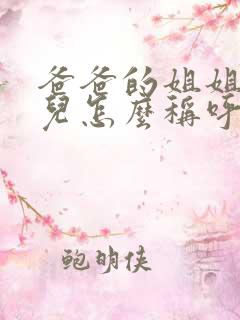 爸爸的姐姐
兒怎麼稱呼
鲍明侠